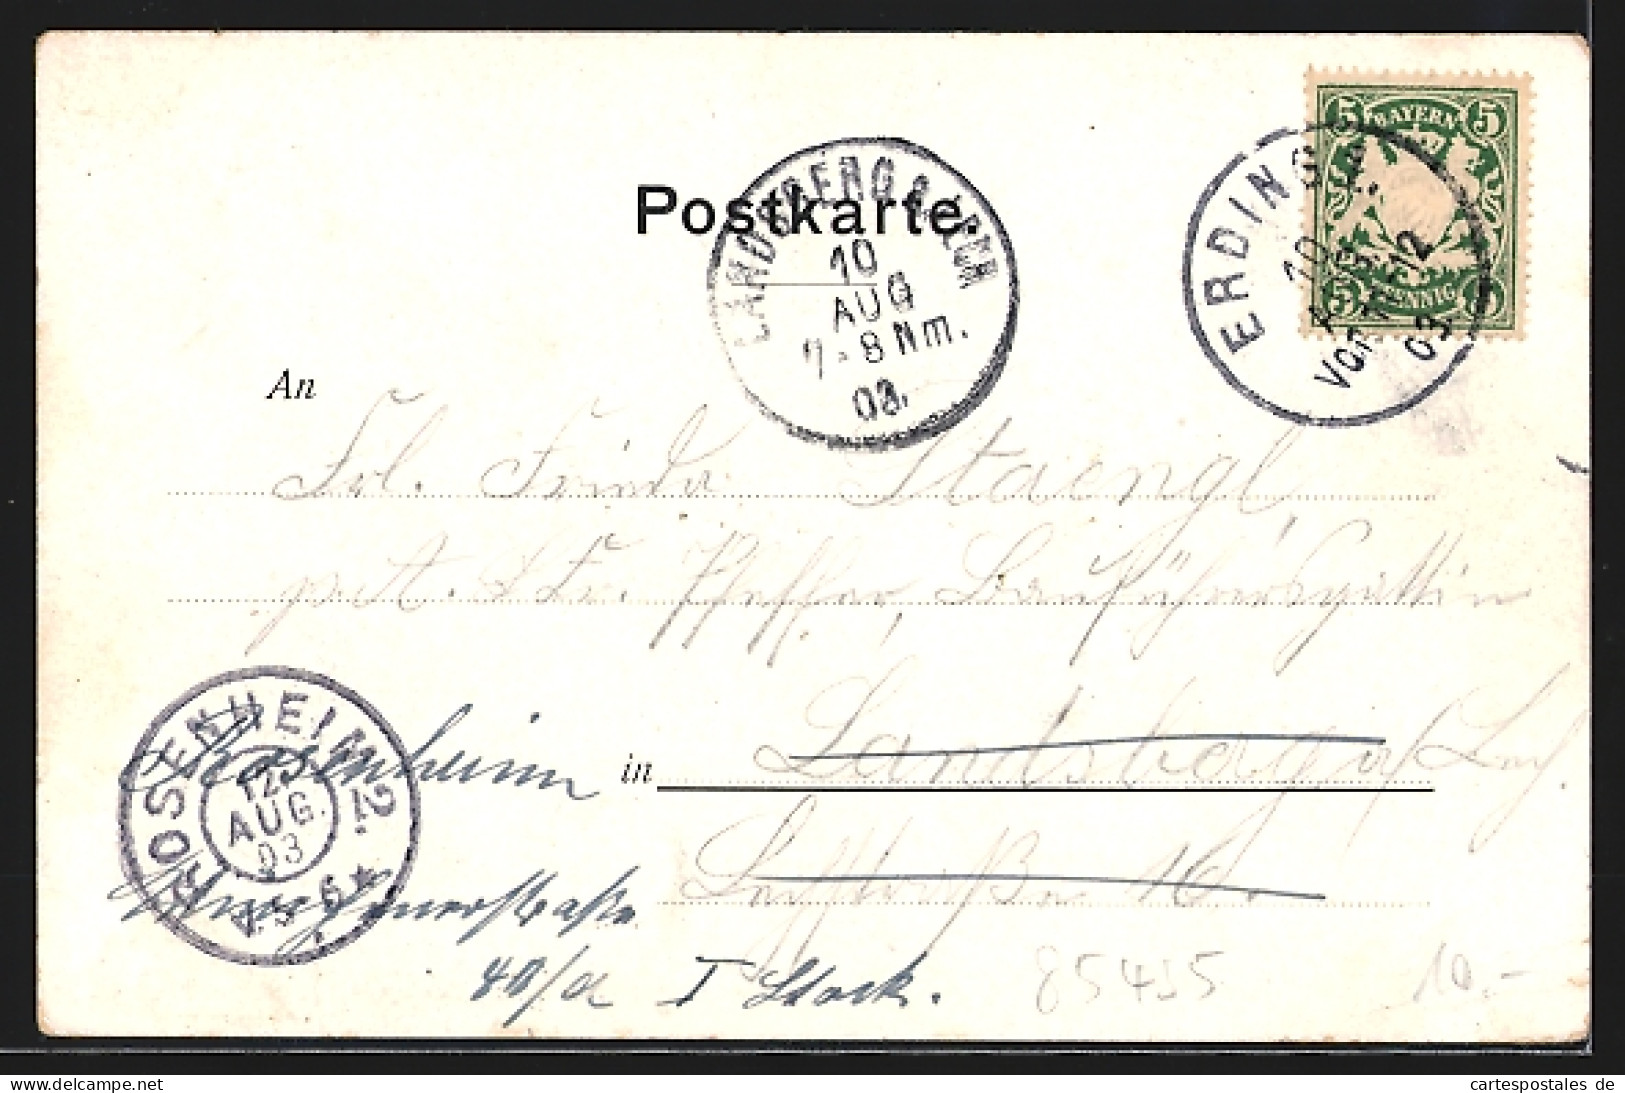 5 BAYERN 5
5 PFENNIG 5
ERDING
10
AUG
VORM 11-12
03
Postkarte.
LANDSBERG A/LECH
10
AUG
7-8 Nm.
03.
An
Frl. Frieda Staengl,
p. A. Fr. Pfeffer, Bauführersgattin
in Landsberg a/Lech.
16.
Rosenheim
40/a I Stock.
ROSENHEIM 2.
12
AUG.
03
85435
10.-
delcampe.net
cartespostales de